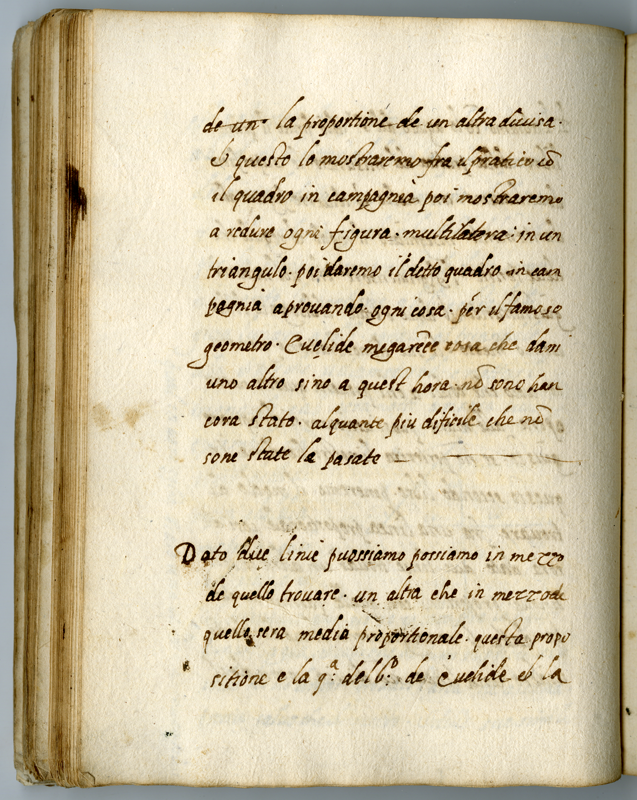 de un la proportione de un altra divisa.
& questo lo mostraremo fra il pratico cō
il quadro in campagnia poi mostraremo
a redure ogni figura. multilatera. in un
triangulo. poi daremo il detto quadro in cam
pagnia aprouando. ogni cosa. per il famoso
geometro. Euclide megarēce cosa che dam
uno altro sino a quest hora. nō sono han
cora stato. alquante piu dificile che nō
sone state la pasate
Dato due linie puossiamo possiamo in mezzo
de quello trouare. un altra che in mezzo de
quello sera media proportionale. questa propo
sitione e la q.ª del 6.º de Euclide & la